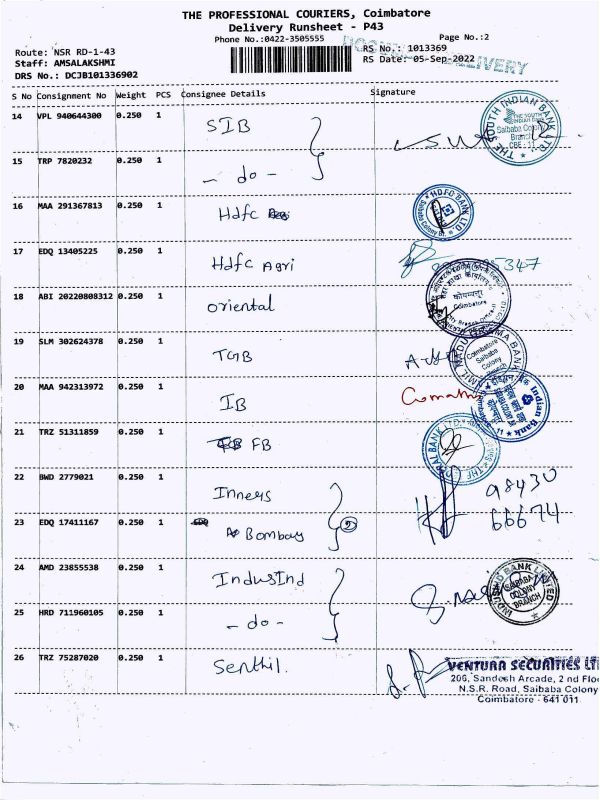 THE PROFESSIONAL COURIERS, Coimbatore
Delivery Runsheet - P43
Phone No.:0422-3505555 Page No.:2
Route: NSR RD-1-43 RS No.: 1013369
Staff: AMSALAKSHMI RS Date: 05-Sep-2022
DELIVERY
DRS No.: DCJB101336902
S No Consignment No Weight PCS Consignee Details Signature
14 VPL 940644300 0.250 1 SIB
THE SOUTH INDIAN BANK LTD. THE SOUTH INDIAN BANK Saibaba Colony Branch CBE - 11
15 TRP 7820232 0.250 1 - do -
16 MAA 291367813 0.250 1 Hdfc
HDFC BANK LTD.
17 EDQ 13405225 0.250 1 Hdfc Agri
18 ABI 20220808312 0.250 1 oriental
कोयम्बत्तूर Coimbatore
19 SLM 302624378 0.250 1 TGB
TAMIL NADU GRAMA BANK Coimbatore Saibaba Colony Branch
20 MAA 942313972 0.250 1 IB
Indian Bank
21 TRZ 51311859 0.250 1 FB
22 BWD 2779021 0.250 1 Inners 98430
23 EDQ 17411167 0.250 1 Bombay 66674
24 AMD 23855538 0.250 1 IndusInd
INDUSIND BANK LIMITED SAIBABA COLONY BRANCH
25 HRD 711960105 0.250 1 - do -
26 TRZ 75287020 0.250 1 Senthil.
VENTURA SECURITIES LT
206, Sandesh Arcade, 2 nd Floo
N.S.R. Road, Saibaba Colony
Coimbatore - 641 011